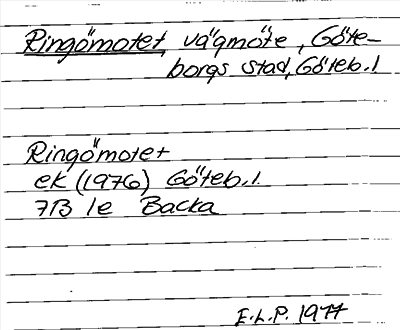 Ringömotet, vägmöte, Göte-
borgs stad, Göteb.l
Ringömotet
ek (1976) Göteb.l.
7B 1e Backa
E.L.P. 1977